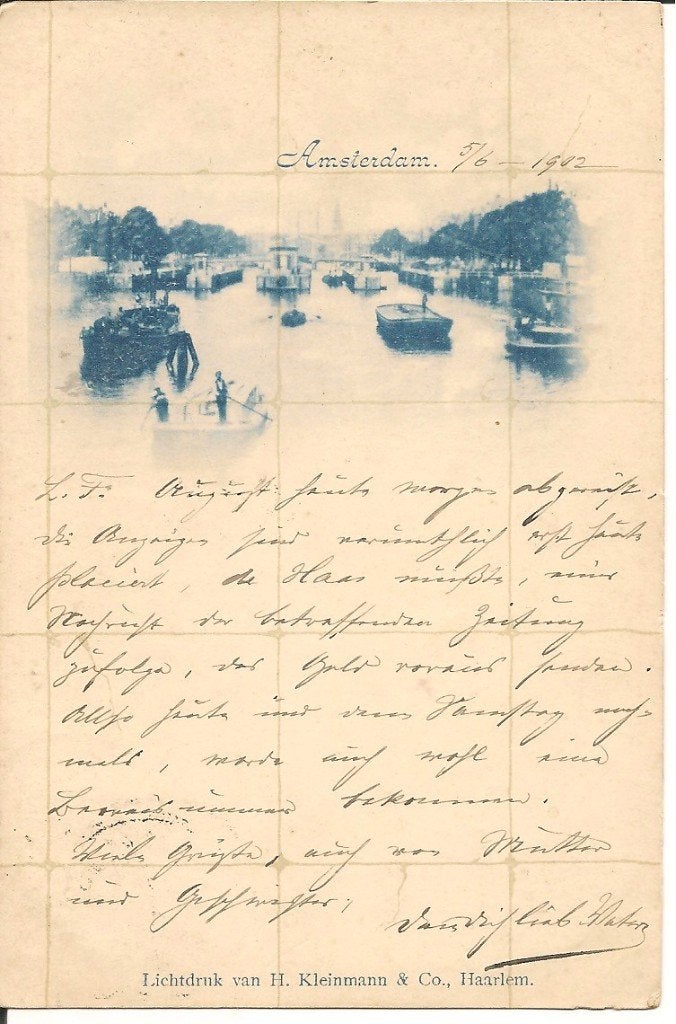 Amsterdam. 5/6 – 1902
L. F. August heute morgen abgereist,
die Anzeigen sind vermuthlich erst heute
placiert, de Haas mußte, einer
Nachricht der betreffenden Zeitung
zufolge, das Geld voraus senden.
Also heute und dann Samstag noch=
mals, werde auch wohl eine
bekommen.
Viele Grüße, auch von Mutter
und Geschwister,
Dein Dich lieb. Vater
Lichtdruk van H. Kleinmann & Co., Haarlem.